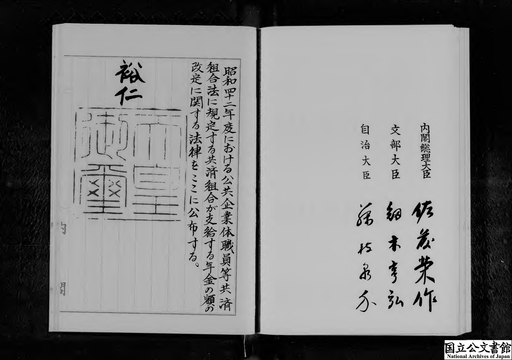 内閣総理大臣 佐藤栄作
文部大臣 剱木亨弘
自治大臣 藤枝泉介
昭和四十二年度における公共企業体職員等共済
組合法に規定する共済組合が支給する年金の額の
改定に関する法律をここに公布する。
裕仁
天皇
御璽
内閣
国立公文書館
National Archives of Japan